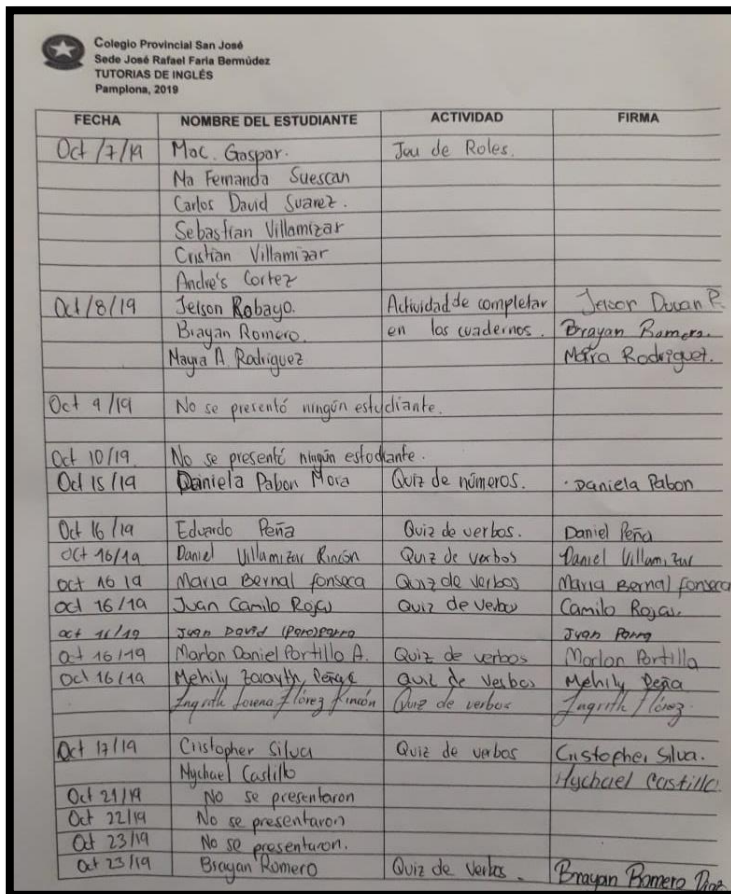 Colegio Provincial San José
Sede José Rafael Faria Bermúdez
TUTORIAS DE INGLÉS
Pamplona, 2019
FECHA NOMBRE DEL ESTUDIANTE ACTIVIDAD FIRMA
Oct /7/19 Mac. Gaspar. Jeu de Roles.
Ma Fernanda Suescan
Carlos David Suarez.
Sebastian Villamizar
Cristian Villamizar
Andrés Cortez
Oct/8/19 Jeison Robayo. Actividad de completar Jeison Duvan R.
Brayan Romero. en los cuadernos. Brayan Romero.
Mayra A Rodriguez Maira Rodriguez.
Oct 9/19 No se presentó ningún estudiante.
Oct 10/19. No se presentó ningún estudiante.
Oct 15/19 Daniela Pabon Mora Quiz de números. Daniela Pabon
Oct 16/19 Eduardo Peña Quiz de verbos. Daniel Peña
Oct 16/19 Daniel Villamizar Rincón Quiz de verbos Daniel Villamizar
oct 16 19 Maria Bernal fonseca Quiz de verbos Maria Bernal fonseca
oct 16/19 Juan Camilo Rojas Quiz de verbos Camilo Rojas.
oct 16/19 Juan David Parra Juan Parra
oct 16/19 Marlon Daniel Portillo A. Quiz de verbos Marlon Portilla
Oct 16/19 Mehily Quiz de verbos Mehily Peña
Ingrith Lorena Flórez Rincón Quiz de verbos Ingrith Flórez
Oct 17/19 Cristopher Silva Quiz de verbos Cristopher Silva.
Mychael Castillo Hychael Castillo
Oct 21/19 No se presentaron
Oct 22/19 No se presentaron
Oct 23/19 No se presentaron.
Oct 23/19 Brayan Romero Quiz de Verbos. Brayan Romero